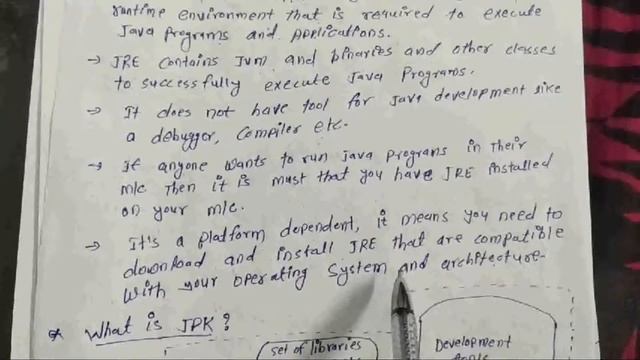 runtime environment that is required to execute
Java Programs and Applications.
→ JRE contains Jvm and binaries and other classes
to successfully execute Java Programs.
→ It does not have tool for Java development like
a debugger, compiler etc.
→ If anyone wants to run Java programs in their
m/c Then it is must that you have JRE installed
on your m/c.
→ It's a platform dependent, it means you need to
download and install JRE that are compatible
with your operating system and architecture.
* What is JDK?
set of libraries
Development